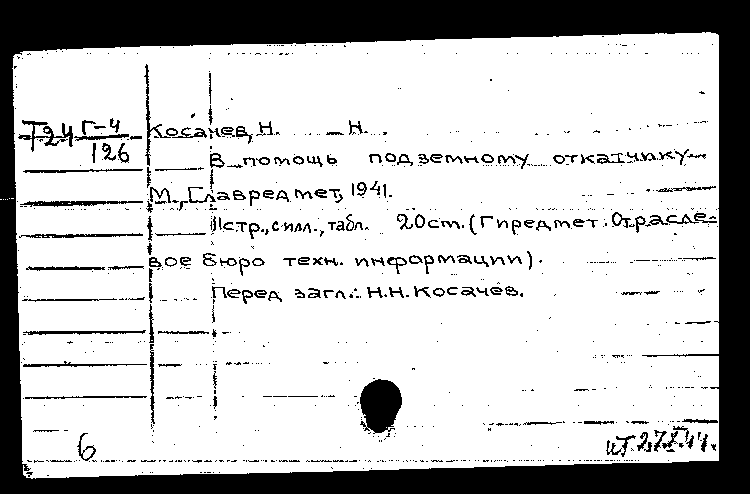 Т24 Г-4
126
Косачев, Н. Н.
В помощь подземному откатчику
М., Главредмет, 1941.
11стр., с илл., табл. 20см. (Гиредмет. Отрасле-
вое бюро техн. информации).
Перед загл.: Н.Н. Косачев.
6